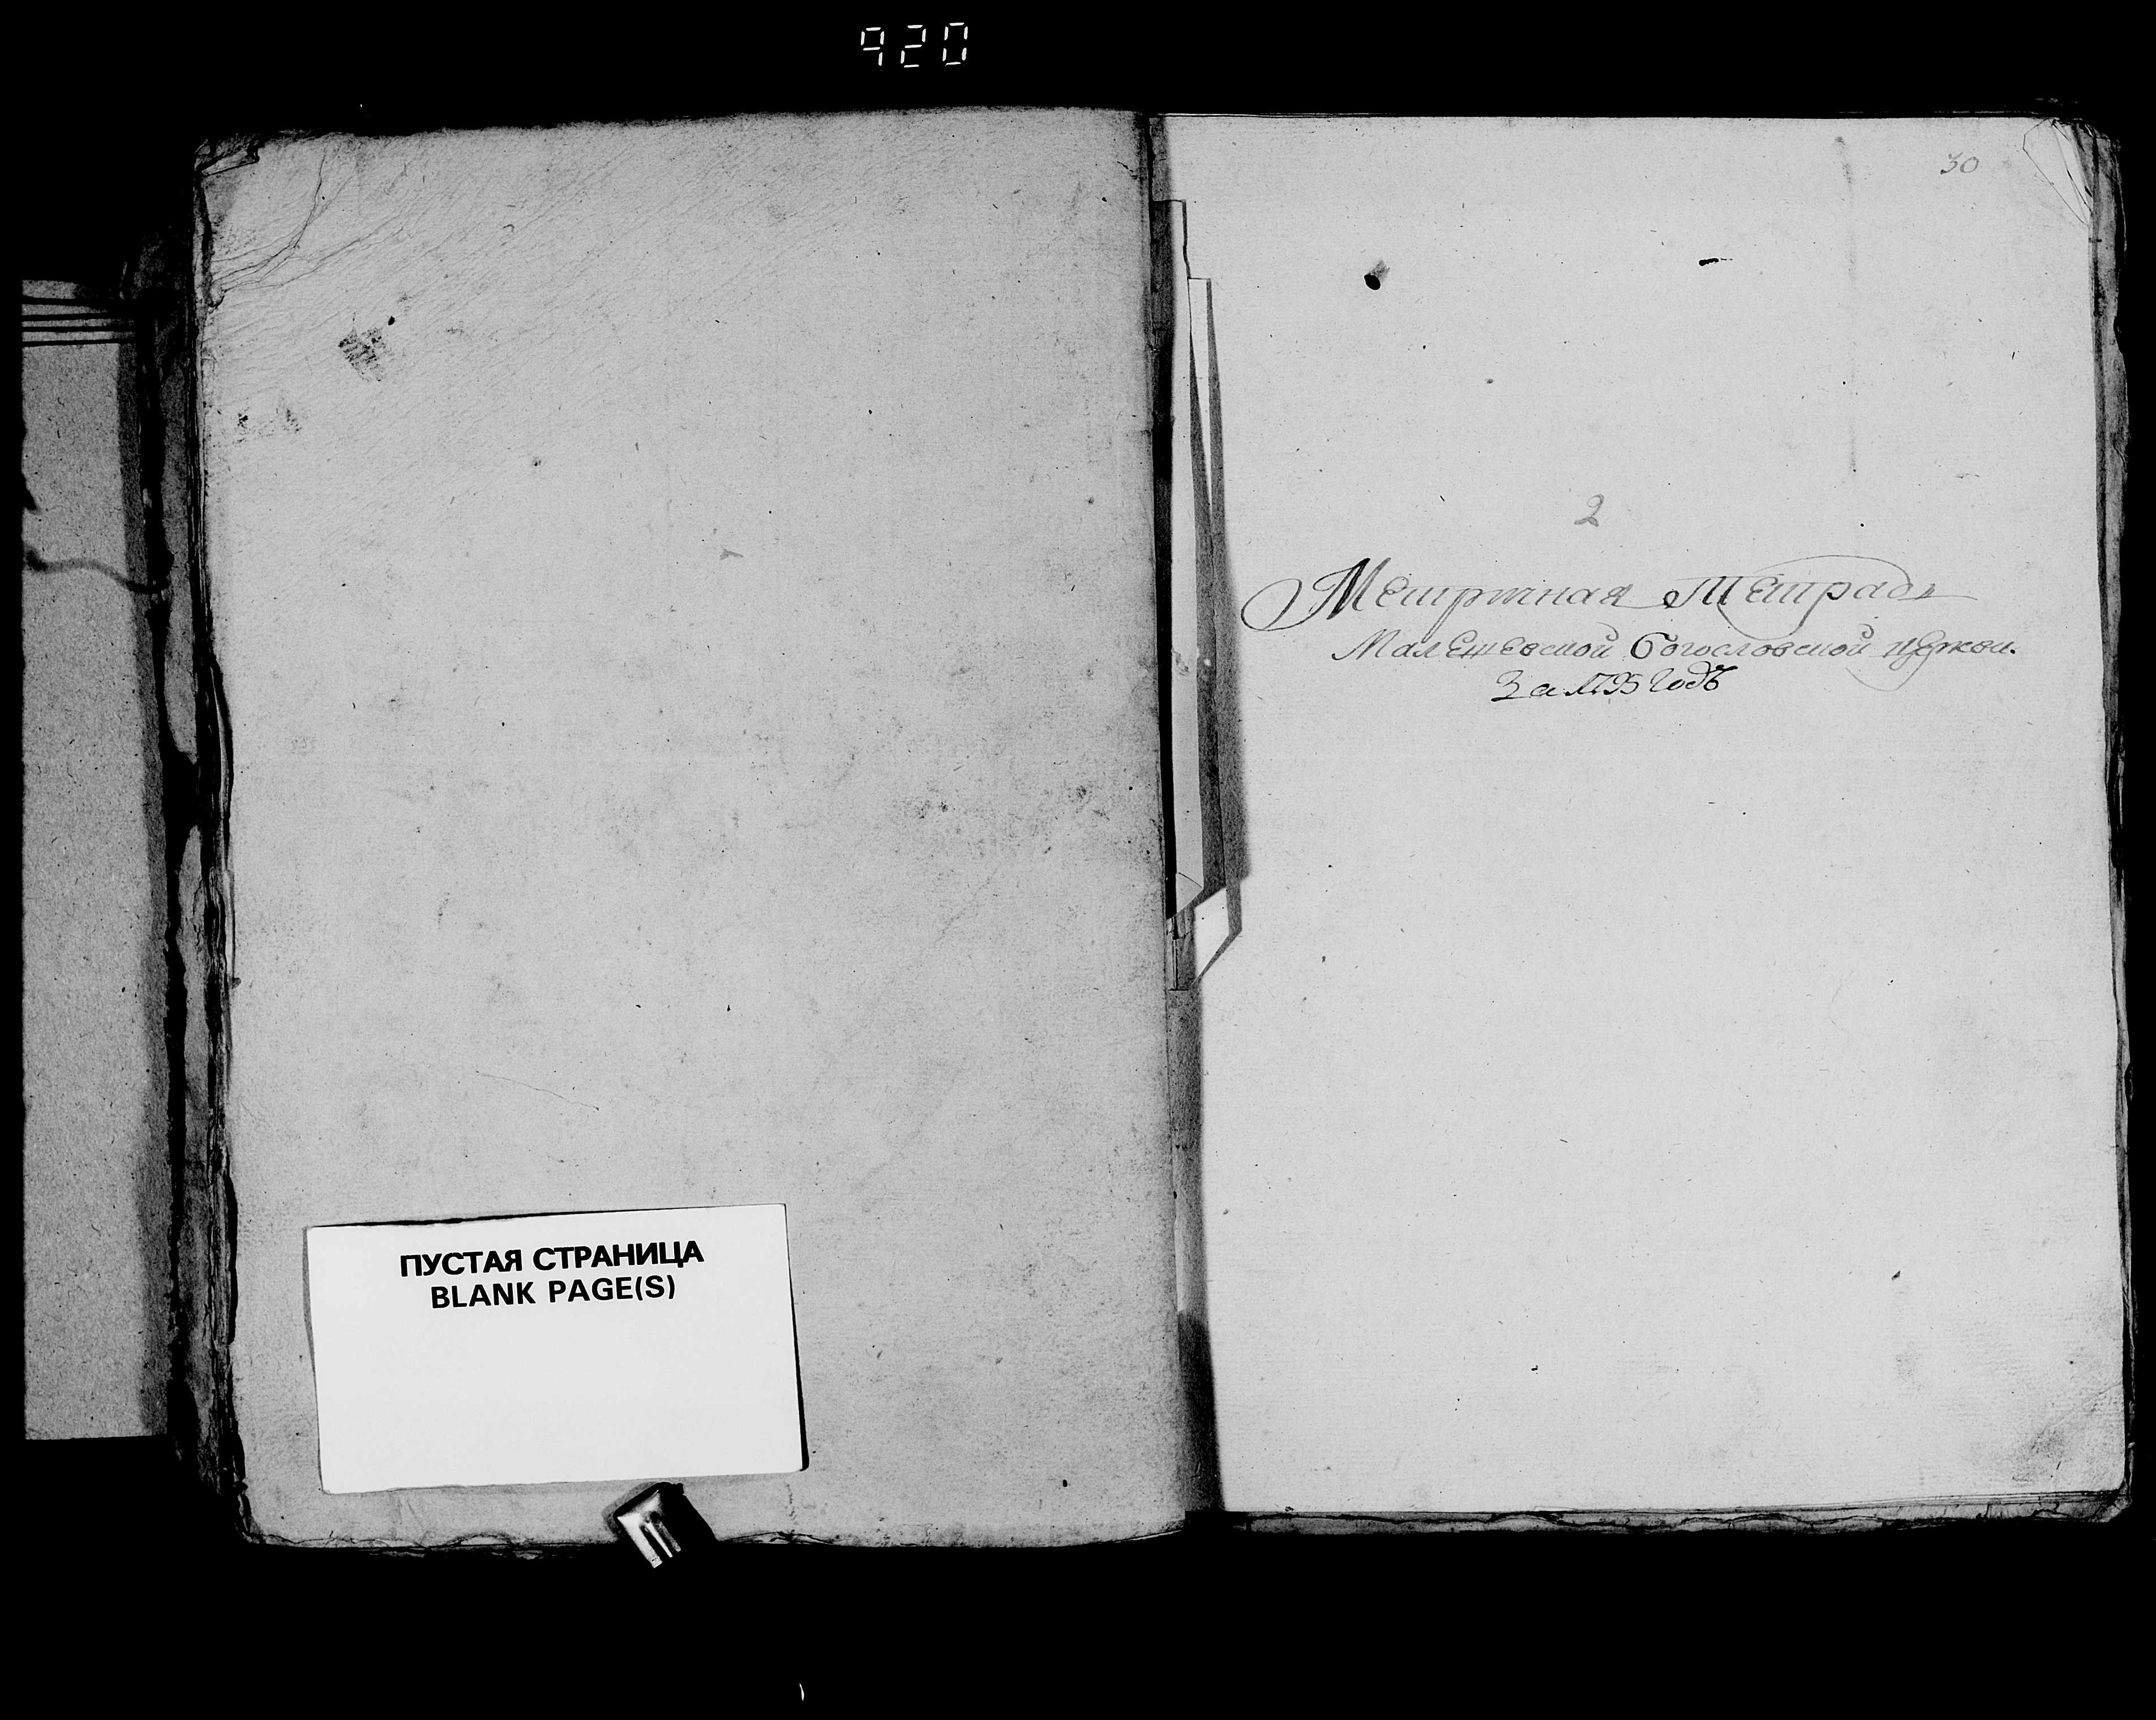 920
ПУСТАЯ СТРАНИЦА
BLANK PAGE(S)
30
2
Метричная Тетрадь
Малешевской Богословской церкви.
За 1795 годъ